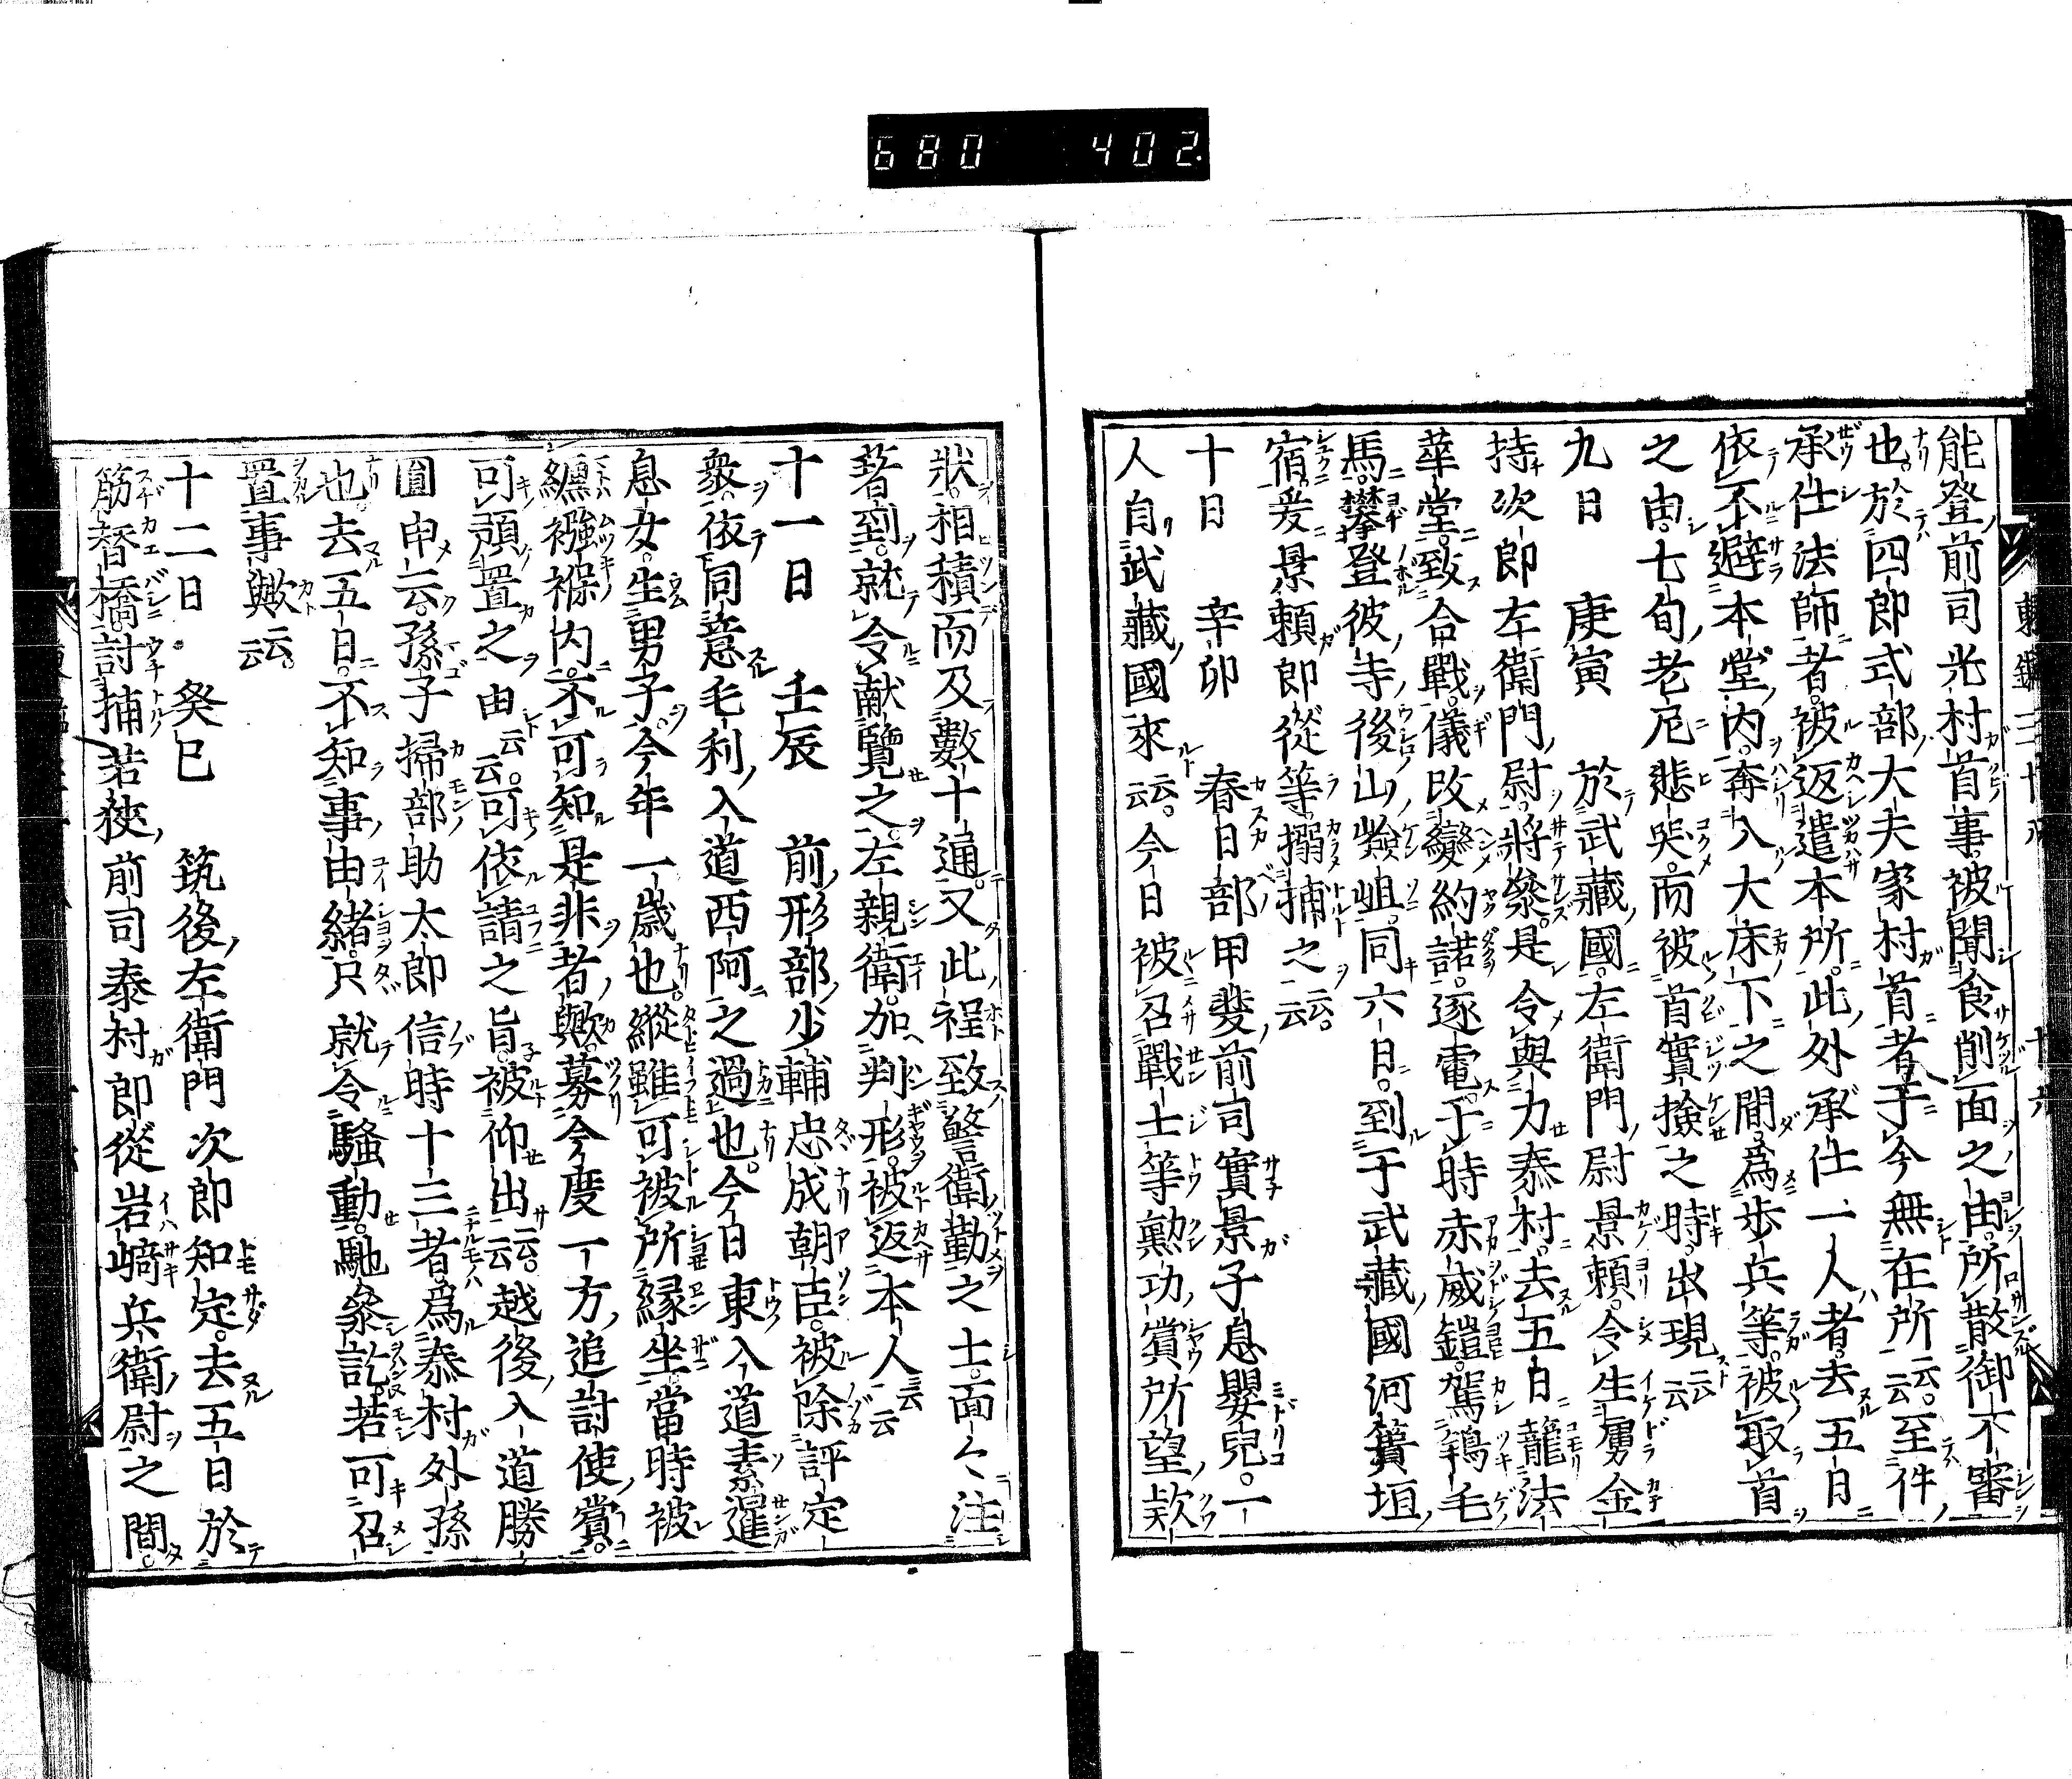 680 402
能登前司光村首事。被聞食削面之由。所散御不審
也。於四郎式部大夫家村首者。于今無在所云云。至件
承仕法師者。被返遣本所。此外承仕一人者。去五日
依不避本堂内。奔入大床下之間。爲歩兵等。被取首
之由。七旬老尼悲哭。而被首實撿之時。出現云云
九日 庚寅 於武藏國。左衛門尉景頼。令生虜金
持次郎左衛門尉。將參。是令與力泰村。去五日籠法
華堂。致合戰。儀改變約諾。逐電。于時赤威鎧。駕鴾毛
馬。攀登彼寺後山嶮岨。同六日。到于武藏國河簀垣
宿。爰景頼郎從等搦捕之云云。
十日 辛卯 春日部甲斐前司實景子息嬰兒。一
人自武藏國來云云。今日被召戰士等勲功賞所望款
狀。相積而及數十通。又此程致警衛勤之士。面々注
著到。就令献覽之。左親衛。加判形。被返本人云云
十一日 壬辰 前形部少輔忠成朝臣。被除評定
衆。依同意毛利入道西阿之過也。今日東入道素暹
息女。生男子。今年一歳也。縱雖可被所縁坐。當時被
纏襁褓内。不可知是非者歟。募今度一方追討使賞。
可預置之由云云。可依請之旨。被仰出云云。越後入道勝
圓申云。孫子掃部助太郎信時十三者。爲泰村外孫
也。去五日。不知事由緒。只就令騒動。馳參訖。若可召
置事歟云云。
十二日 癸巳 筑後左衛門次郎知定。去五日於
筋替橋。討捕若狹前司泰村郎從岩﨑兵衛尉之間。